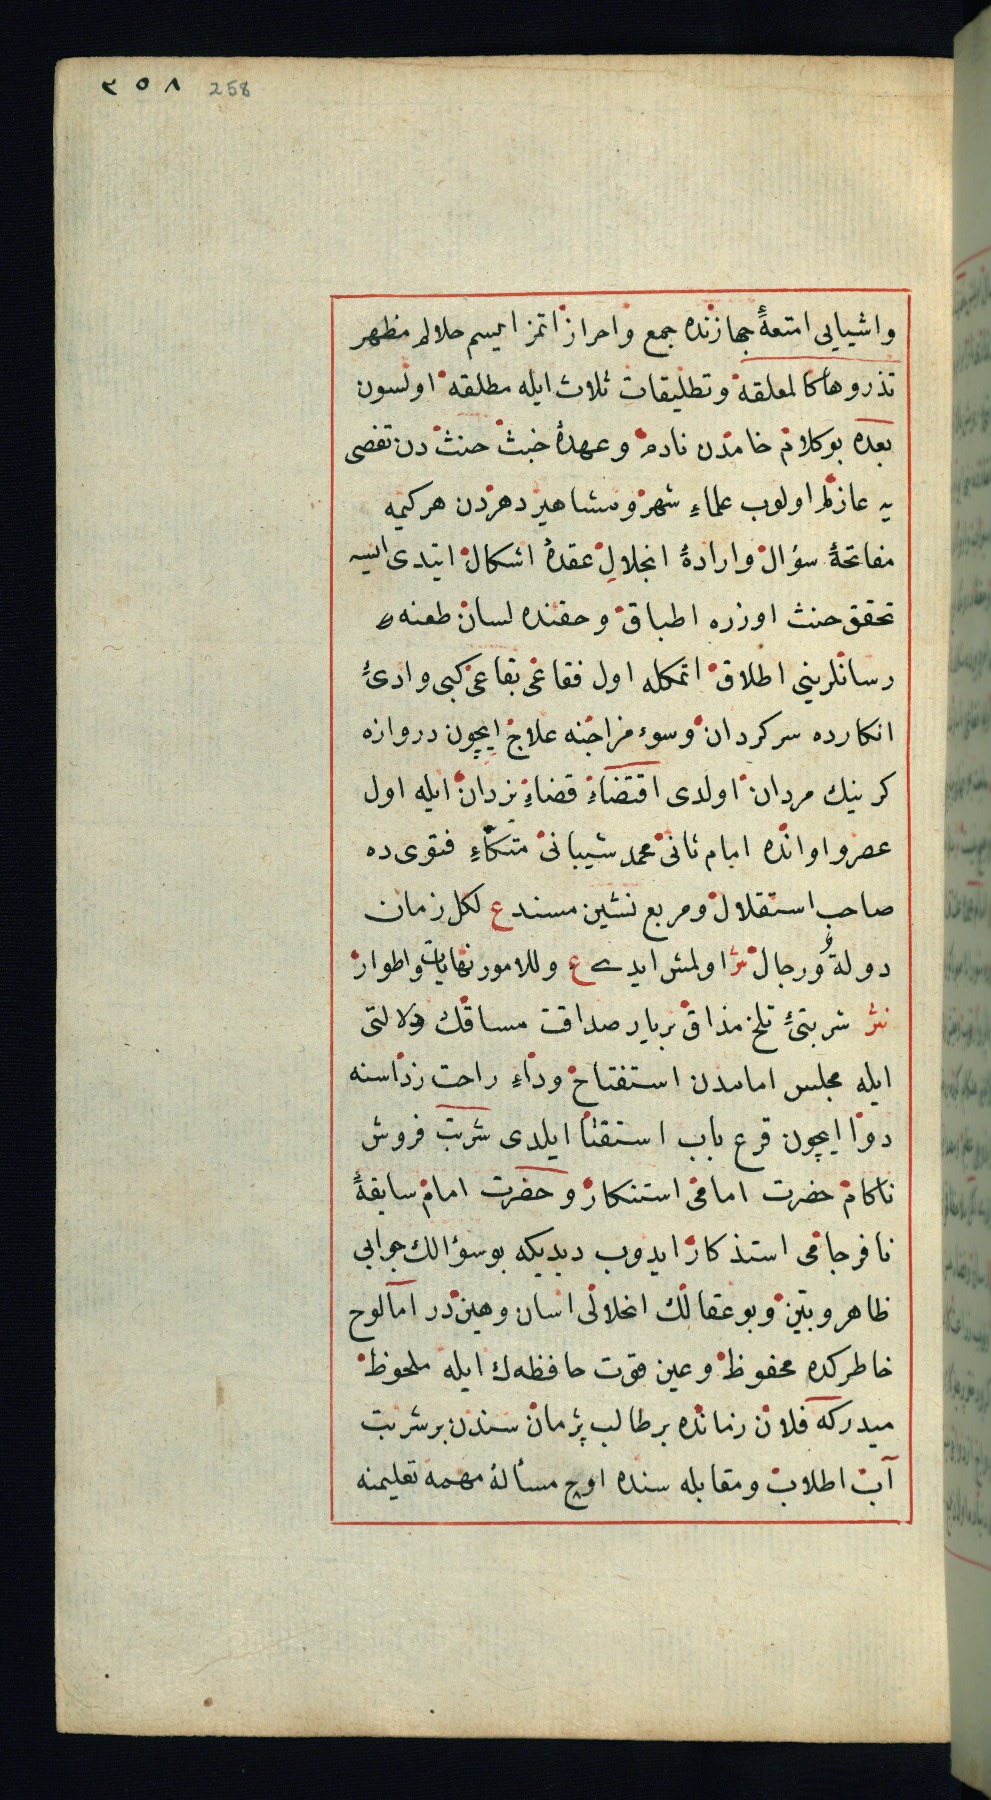 ٢٥٨ 258
واشيايى امتعهٔ جهازنده جمع واحراز اتمز ايسم حلالم مظهر
تذروها كالمعلقة وتطليقات ثلاث ايله مطلقه اولسون
بعده بوكلام خامدن نادم وعهدهٔ خبث حنث دن تفصى
يه عازم اولوب علماءِ شهر ومشاهير دهردن هركيمه
مفاتحهٔ سؤال وارادهٔ انحلال عقدهٔ اشكال ايتدى ايسه
تحقق حنث اوزره اطباق وحقنده لسان طعنه
رسانلرينى اطلاق اتمكله اول فقاعى بقاعى كبى وادىٔ
انكارده سركردان وسوء مزاجنه علاج ايچون دروازه
كرينك مردان اولدى اقتضاءِ قضاءِ يزدان ايله اول
عصر واوانده امام ثانى محمد شيبانى متكاءِ فتوى ده
صاحب استقلال ومربع نشين مسند ع لكل زمان
دولة ورجال نثر اولمش ايدے ع وللامور نهايات واطوار
نثر شربتىٔ تلخ مذاق بريار صداقت مساقك دلالتى
ايله مجلس امامدن استفتاح وداءِ راحت رداسنه
دوا ايچون قرع باب استفتا ايلدى شربت فروش
ناكام حضرت امامى استنكار وحضرت امام سابقهٔ
نافرجامى استذكار ايدوب ديديكه بوسؤالك جوابى
ظاهر وبيّن وبوعقالك انحلالى اسان وهين در اما لوح
خاطركده محفوظ وعين قوت حافظه ك ايله ملحوظ
ميدركه فلان زمانده برطالب پژمان سندن برشربت
آب اطلاب ومقابله سنده اوچ مسألهٔ مهمه تعليمنه